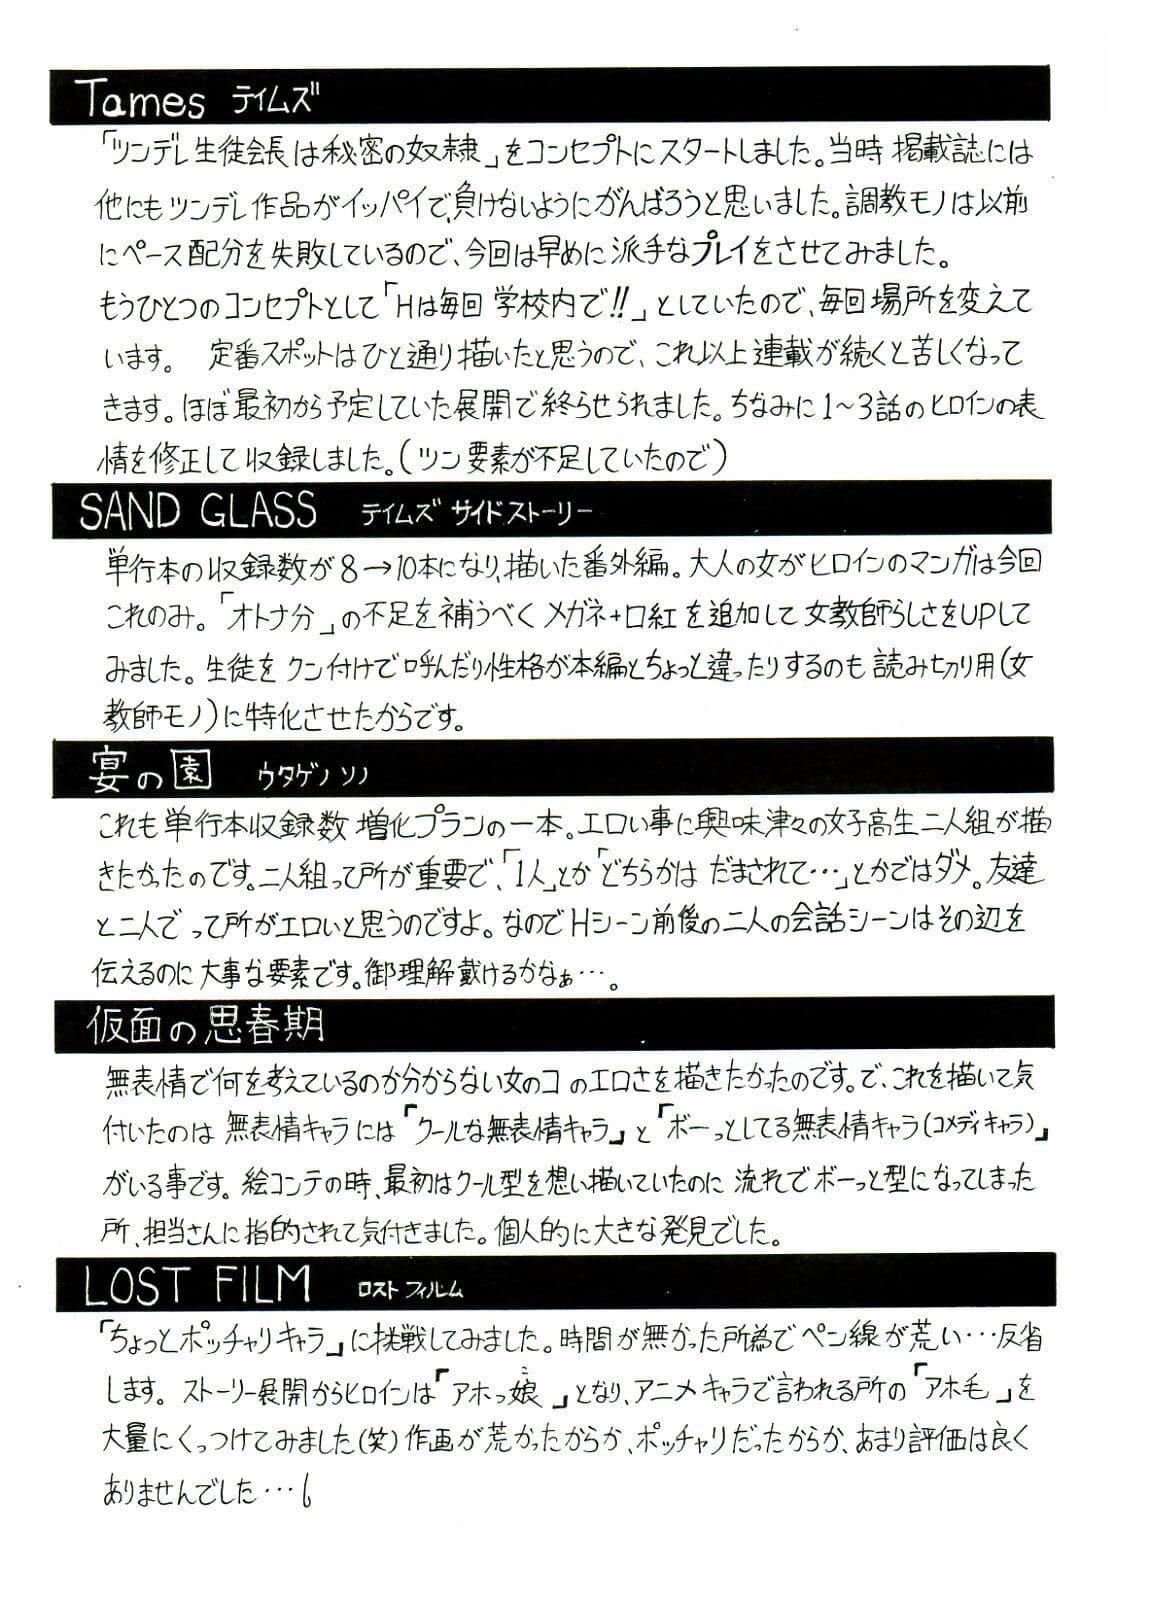 Tames テイムズ
「ツンデレ生徒会長は秘密の奴隷」をコンセプトにスタートしました。当時掲載誌には
他にもツンデレ作品がイッパイで、負けないようにがんばろうと思いました。調教モノは以前
にペース配分を失敗しているので、今回は早めに派手なプレイをさせてみました。
もうひとつのコンセプトとして「Hは毎回学校内で!!」としていたので、毎回場所を変えて
います。 定番スポットはひと通り描いたと思うので、これ以上連載が続くと苦しくなって
きます。ほぼ最初から予定していた展開で終らせられました。ちなみに1～3話のヒロインの表
情を修正して収録しました。(ツン要素が不足していたので)
SAND GLASS テイムズ サイドストーリー
単行本の収録数が8→10本になり、描いた番外編。大人の女がヒロインのマンガは今回
これのみ。「オトナ分」の不足を補うべくメガネ+口紅を追加して女教師らしさをUPして
みました。生徒をクン付けで呼んだり性格が本編とちょっと違ったりするのも読み切り用(女
教師モノ)に特化させたからです。
宴の園 ウタゲノソノ
これも単行本収録数増化プランの一本。エロい事に興味津々の女子高生二人組が描
きたかったのです。二人組って所が重要で、「1人」とか「どちらかはだまされて…」とかではダメ。友達
と二人でって所がエロいと思うのですよ。なのでHシーン前後の二人の会話シーンはその辺を
伝えるのに大事な要素です。御理解戴けるかなぁ…。
仮面の思春期
無表情で何を考えているのか分からない女のコのエロさを描きたかったのです。で、これを描いて気
付いたのは無表情キャラには「クールな無表情キャラ」と「ボーっとしてる無表情キャラ(コメディキャラ)」
がいる事です。絵コンテの時、最初はクール型を想い描いていたのに流れでボーっと型になってしまった
所、担当さんに指的されて気付きました。個人的に大きな発見でした。
LOST FILM ロストフィルム
「ちょっとポッチャリキャラ」に挑戦してみました。時間が無かった所為でペン線が荒い…反省
します。ストーリー展開からヒロインは「アホっ娘」となり、アニメキャラで言われる所の「アホ毛」を
大量にくっつけてみました(笑)作画が荒かったからか、ポッチャリだったからか、あまり評価は良く
ありませんでした…